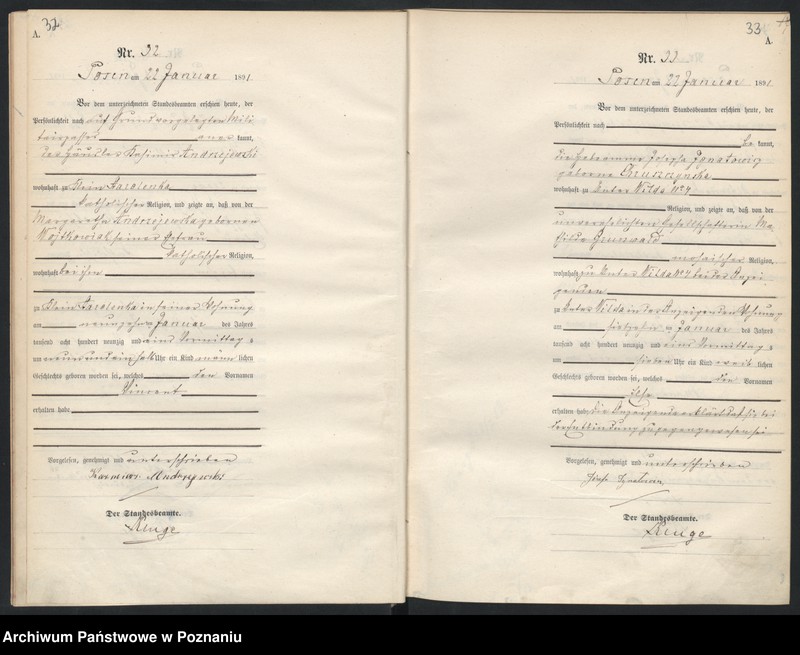 32
A.
Nr. 32
Posen am 22 Januar 1891.
Vor dem unterzeichneten Standesbeamten erschien heute, der
Persönlichkeit nach auf Grund vorgelegten Mili
tairpasses kannt,
Kasimir Andrzejewski
wohnhaft zu Klein
katholischer Religion, und zeigte an, daß von der
Margaretha Andrzejewska geborenen
Wojtkowiak seiner Ehefrau
katholischer Religion,
wohnhaft bei ihm
zu Klein in seiner Wohnung
am neunzehn ten Januar des Jahres
tausend acht hundert neunzig und eins Vormittags
um neun und ein halb Uhr ein Kind männ lichen
Geschlechts geboren worden sei, welches den Vornamen
Vincent
erhalten habe.
Vorgelesen, genehmigt und unterschrieben
Andrzejewski
Der Standesbeamte.
Kluge
33
A.
Nr. 33
Posen am 22 Januar 1891
Vor dem unterzeichneten Standesbeamten erschien heute, der
Persönlichkeit nach
be kannt,
die Hebamme Josepha Ignatowicz
geborene Gruszczynska
wohnhaft zu Unter Wilda No 4
Religion, und zeigte an, daß von der
unverehelichten Gesellschafterin Ma
thilde Grunwald
mosaischer Religion,
wohnhaft zu Unter Wilda No 4 bei der Anzei
genden
zu Unter Wilda in der Anzeigenden Wohnung
am ten Januar des Jahres
tausend acht hundert neunzig und eins Vormittags
um sieben Uhr ein Kind weib lichen
Geschlechts geboren worden sei, welches den Vornamen
Else
erhalten habe, die Anzeigende erklärt daß sie bei
der Entbindung zugegen gewesen sei
Vorgelesen, genehmigt und unterschrieben
Der Standesbeamte.
Kluge
Archiwum Państwowe w Poznaniu